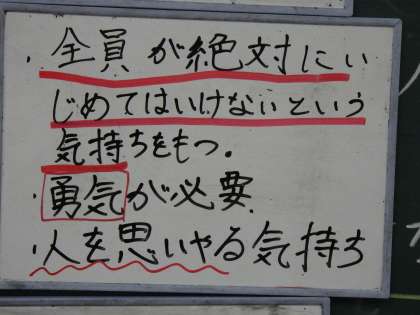 ・全員が絶対にい
じめてはいけないという
気持ちをもつ。
・勇気が必要
・人を思いやる気持ち